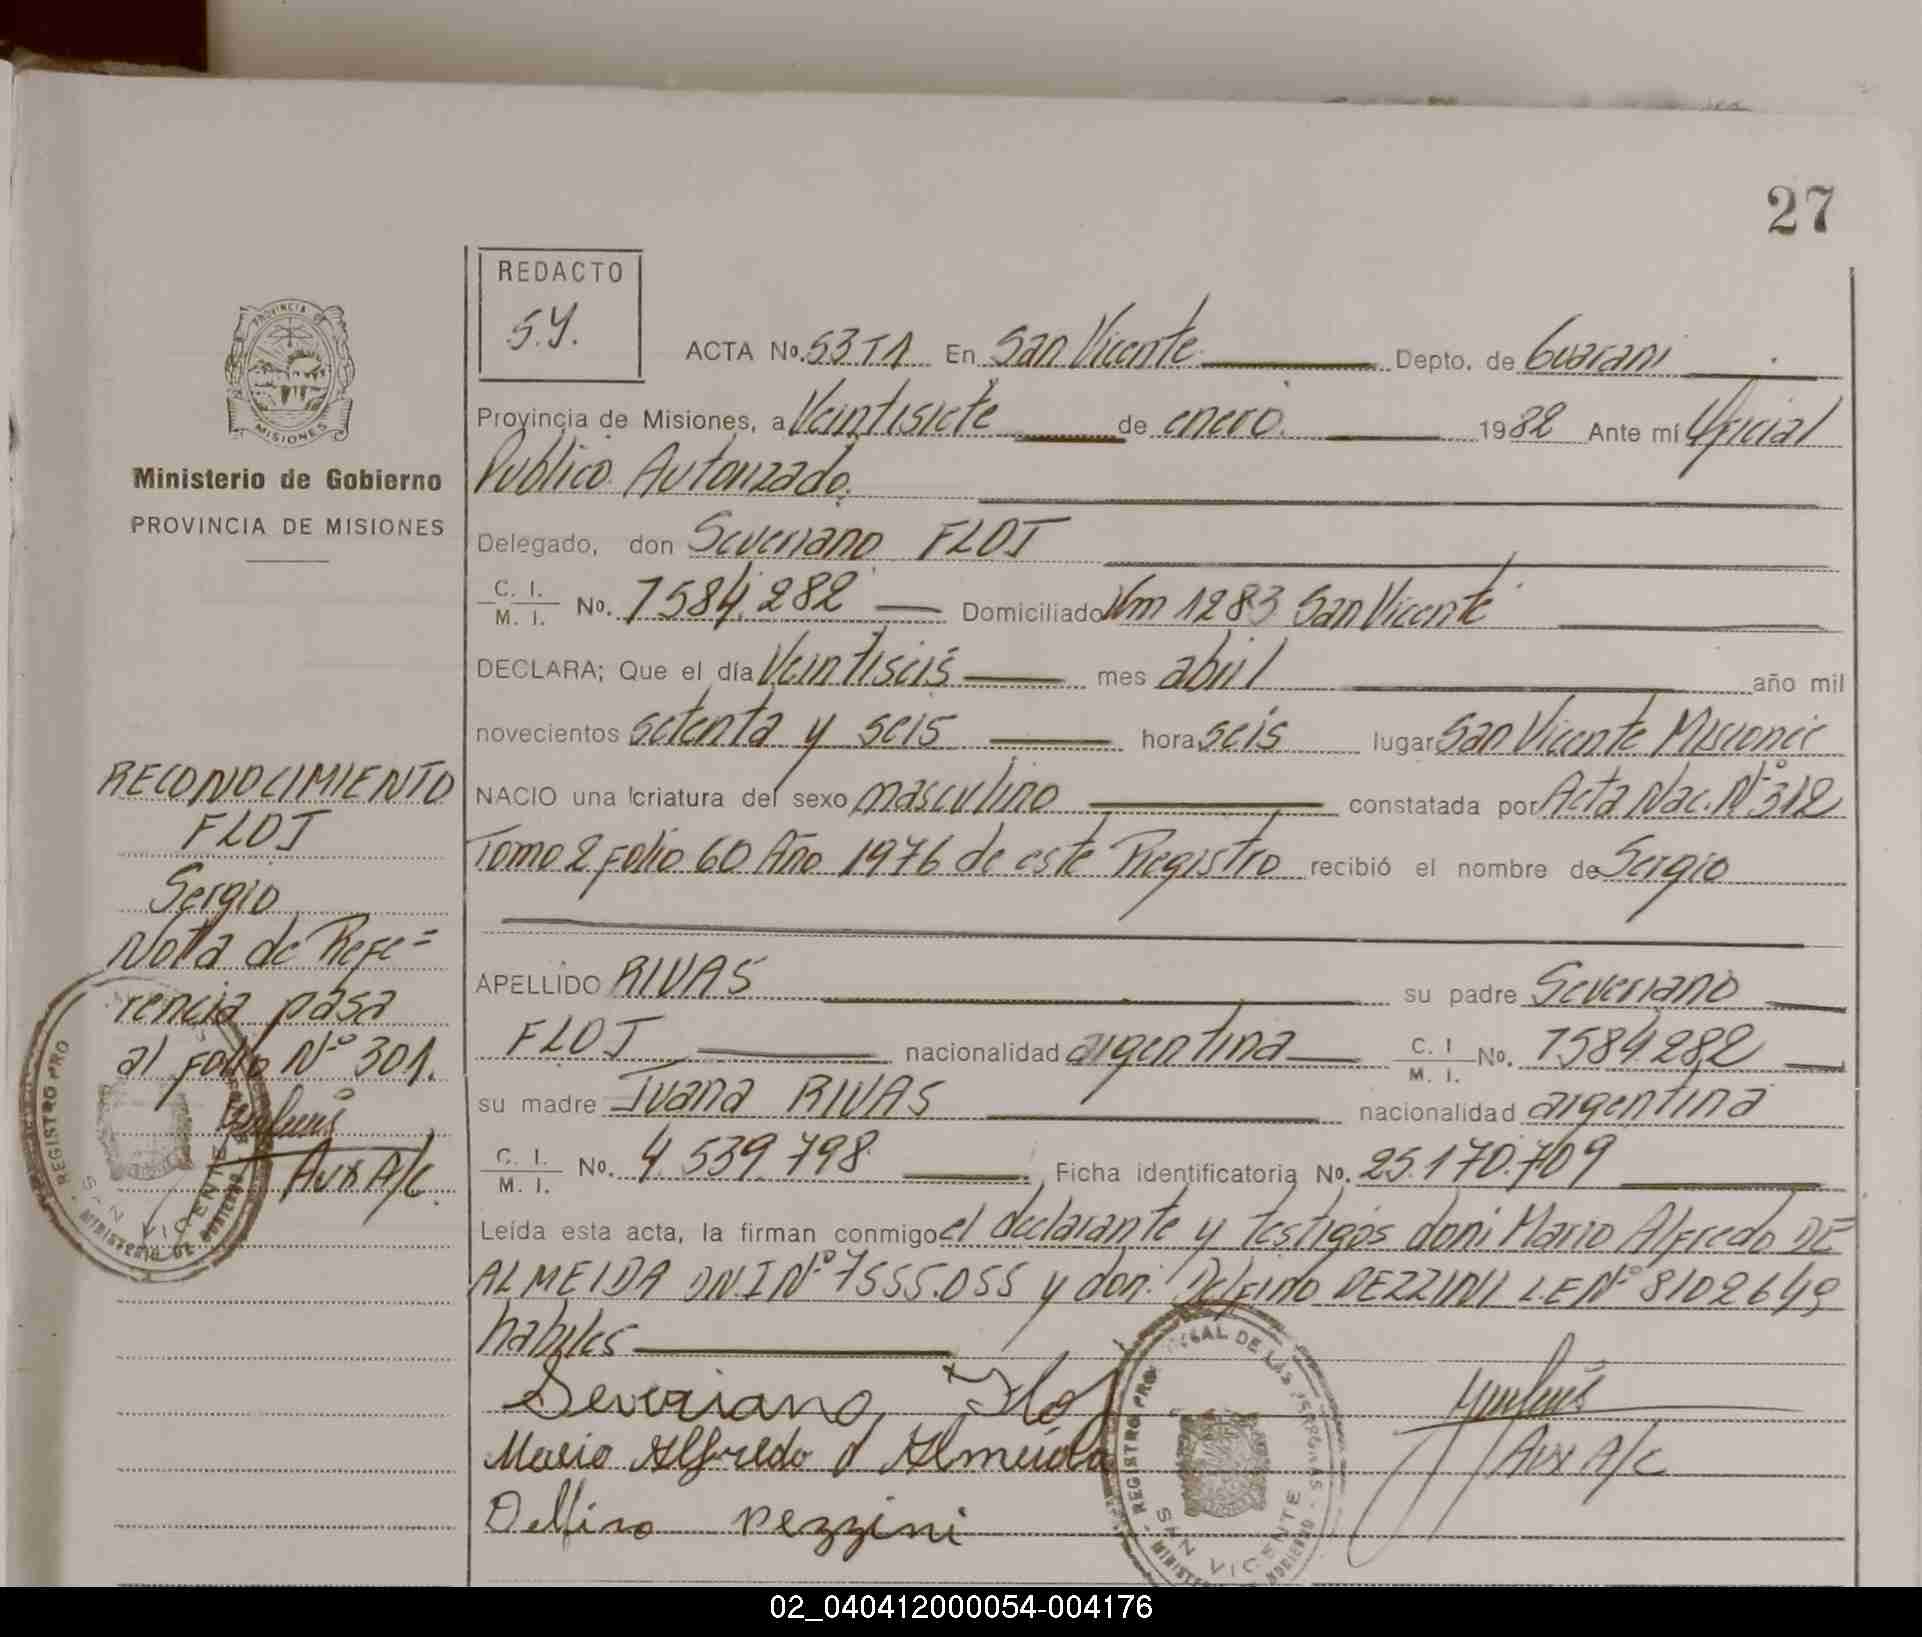 27
REDACTO
S.Y.
PROVINCIA DE
MISIONES
Ministerio de Gobierno
PROVINCIA DE MISIONES
ACTA No. 53T1 En San Vicente Depto. de Guarani
Provincia de Misiones, a Veintisiete de enero. 1982 Ante mí Oficial
Publico Autorizado.
Delegado, don Severiano FLOJ
C. I.
M. I. No. 7584.282 Domiciliado Km 1283 San Vicente
DECLARA; Que el día Veintiseis mes abril año mil
novecientos setenta y seis hora seis lugar San Vicente Misiones
NACIO una criatura del sexo masculino constatada por Acta Nac. Nº 312
Tomo 2 Folio 60 Año 1976 de este Registro recibió el nombre de Sergio
APELLIDO RIVAS su padre Severiano
FLOJ nacionalidad argentina C. I. M. I. No. 7584282
su madre Juana RIVAS nacionalidad argentina
C. I.
M. I. No. 4.539.798 Ficha identificatoria No. 25.170.709
Leída esta acta, la firman conmigo el declarante y testigos don: Mario Alfredo DE
ALMEIDA DNI Nº 7555.055 y don: Delfino PEZZINI L.E Nº 8102649
habiles
Severiano Floj
Mario Alfredo d Almeida
Delfino Pezzini
Aux A/c
RECONOCIMIENTO
FLOJ
Sergio
Nota de Refe=
rencia pasa
al folio Nº 301.
Aux A/c.
REGISTRO PRO
SAN VICENTE
MINISTERIO DE GOBIERNO
REGISTRO PRO AL DE LAS PERSONAS
SAN VICENTE
02_040412000054-004176